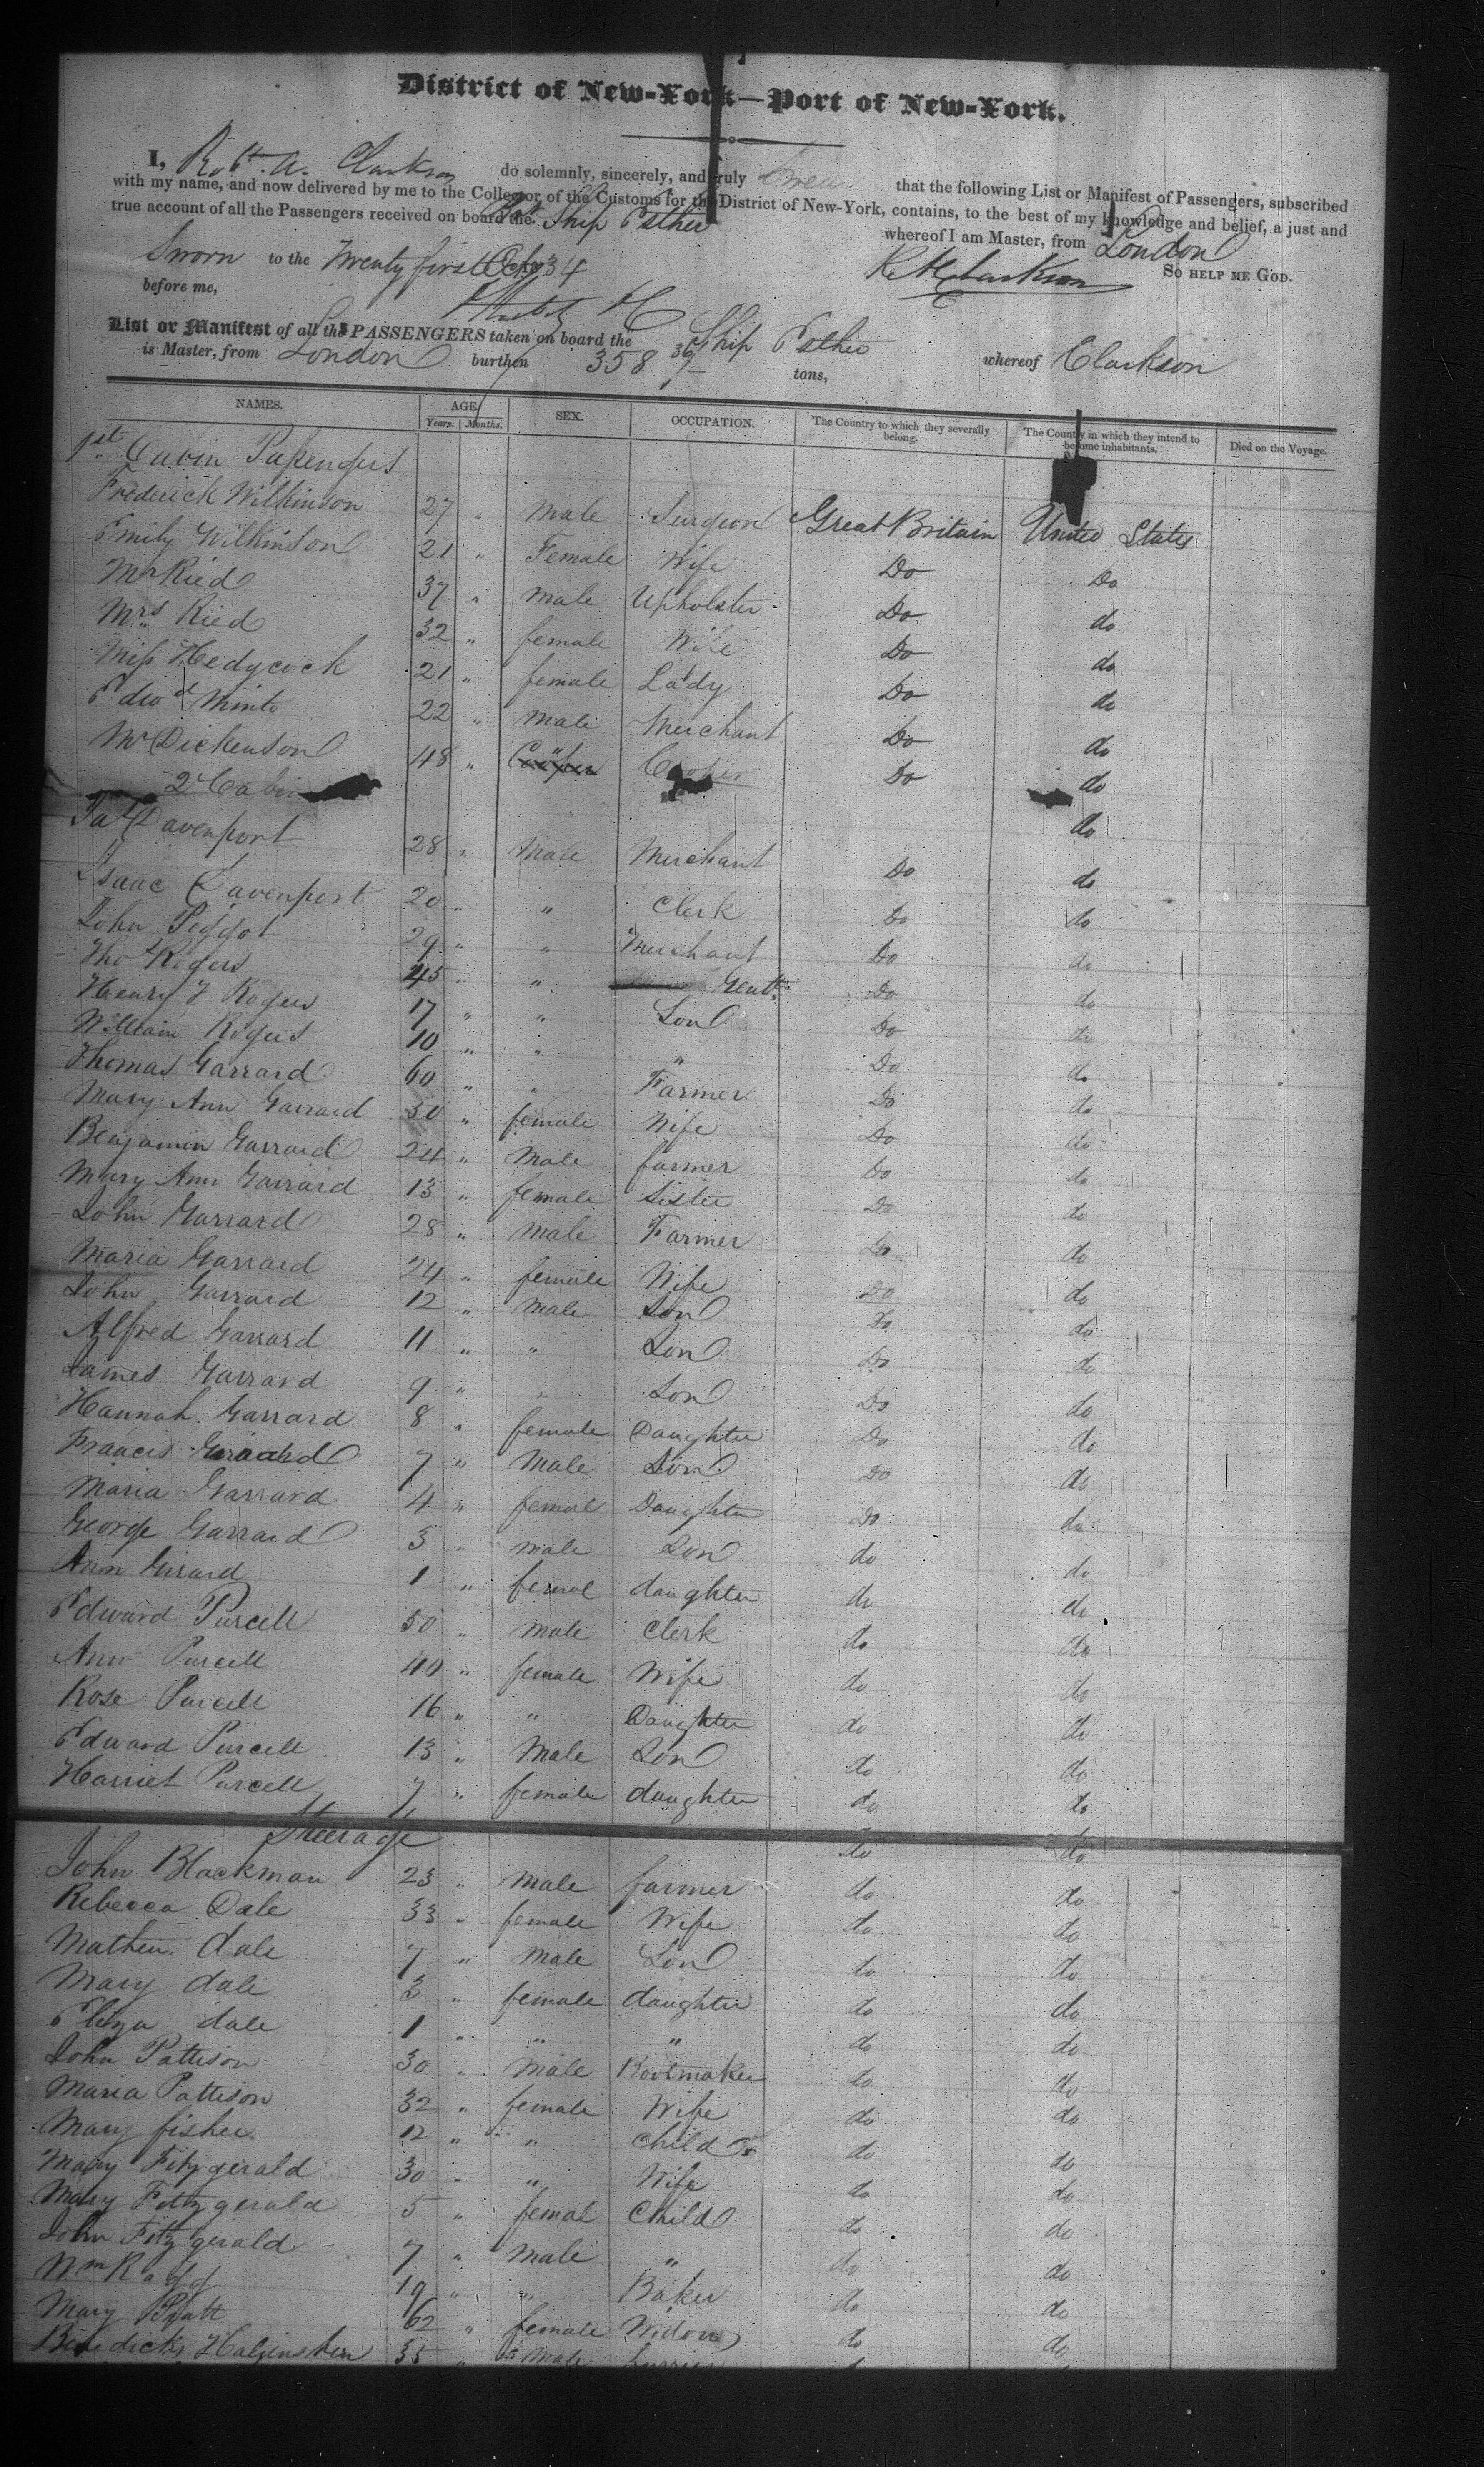 District of New-York—Port of New-York.
I, Robt. W. Clarkson do solemnly, sincerely, and truly Swear that the following List or Manifest of Passengers, subscribed
with my name, and now delivered by me to the Collector of the Customs for the District of New-York, contains, to the best of my knowledge and belief, a just and
true account of all the Passengers received on board the Ship Esther whereof I am Master, from London
Sworn to the Twenty first Octr 34 So HELP ME GOD.
before me, R. W. Clarkson
List or Manifest of all the PASSENGERS taken on board the Ship Esther whereof Clarkson
is Master, from London burthen 358 36/ tons,
NAMES. AGE. Years. Months. SEX. OCCUPATION. The Country to which they severally belong. The Country in which they intend to become inhabitants. Died on the Voyage.
1st Cavin Passengers
Frederick Wilkinson 27 " Male Surgeon Great Britain United States
Emily Wilkinson 21 " Female Wife Do Do
Mr Ried 37 " Male Upholster Do do
Mrs Ried 32 " female Wife Do do
Miss Hedgcock 21 " female Lady Do do
Edwd Minto 22 " Male Merchant Do do
Mr Dickenson 48 " Cooper Cooper Do do
2d Cabin do
Davenport 28 " Male Merchant Do do
Isaac Davenport 20 " " Clerk Do do
John Piggot 29 " " Merchant Do do
Thos Rogers 45 " " Gentn Do do
Henry J Rogers 17 " " Son Do do
William Rogers 10 " " " Do do
Thomas Garrard 60 " " Farmer Do do
Mary Ann Garrard 50 " female Wife Do do
Benjamin Garrard 24 " Male farmer Do do
Mary Ann Garrard 13 " female Sister Do do
John Garrard 28 " Male Farmer Do do
Maria Garrard 24 " female Wife Do do
John Garrard 12 " Male Son Do do
Alfred Garrard 11 " " Son Do do
James Garrard 9 " " Son Do do
Hannah Garrard 8 " female Daughter Do do
Francis Girard 7 " Male Son Do do
Maria Garrard 4 " femal Daughter Do do
George Garrard 3 " male Son do do
Ann Girard 1 " femal daughter do do
Edward Purcell 50 " male Clerk do do
Ann Purcell 40 " female Wife do do
Rose Purcell 16 " " Daughter do do
Edward Purcell 13 " Male Son do do
Harriet Purcell 7 " female daughter do do
Steerage do do
John Blackman 23 " Male farmer do do
Rebecca Dale 33 " female Wife do do
Mathew dale 7 " Male Son do do
Mary dale 3 " female daughter do do
Eliza dale 1 " " " do do
John Pattison 30 " Male Bootmaker do do
Maria Pattison 32 " female Wife do do
Mary fisher 12 " " Child do do
Mary Fitzgerald 30 " " Wife do do
Mary Fitzgerald 5 " femal Child do do
John Fitzgerald 7 " Male " do do
Wm Ragg 19 " " Baker do do
Mary Pratt 62 " female Widow do do
35 " Male